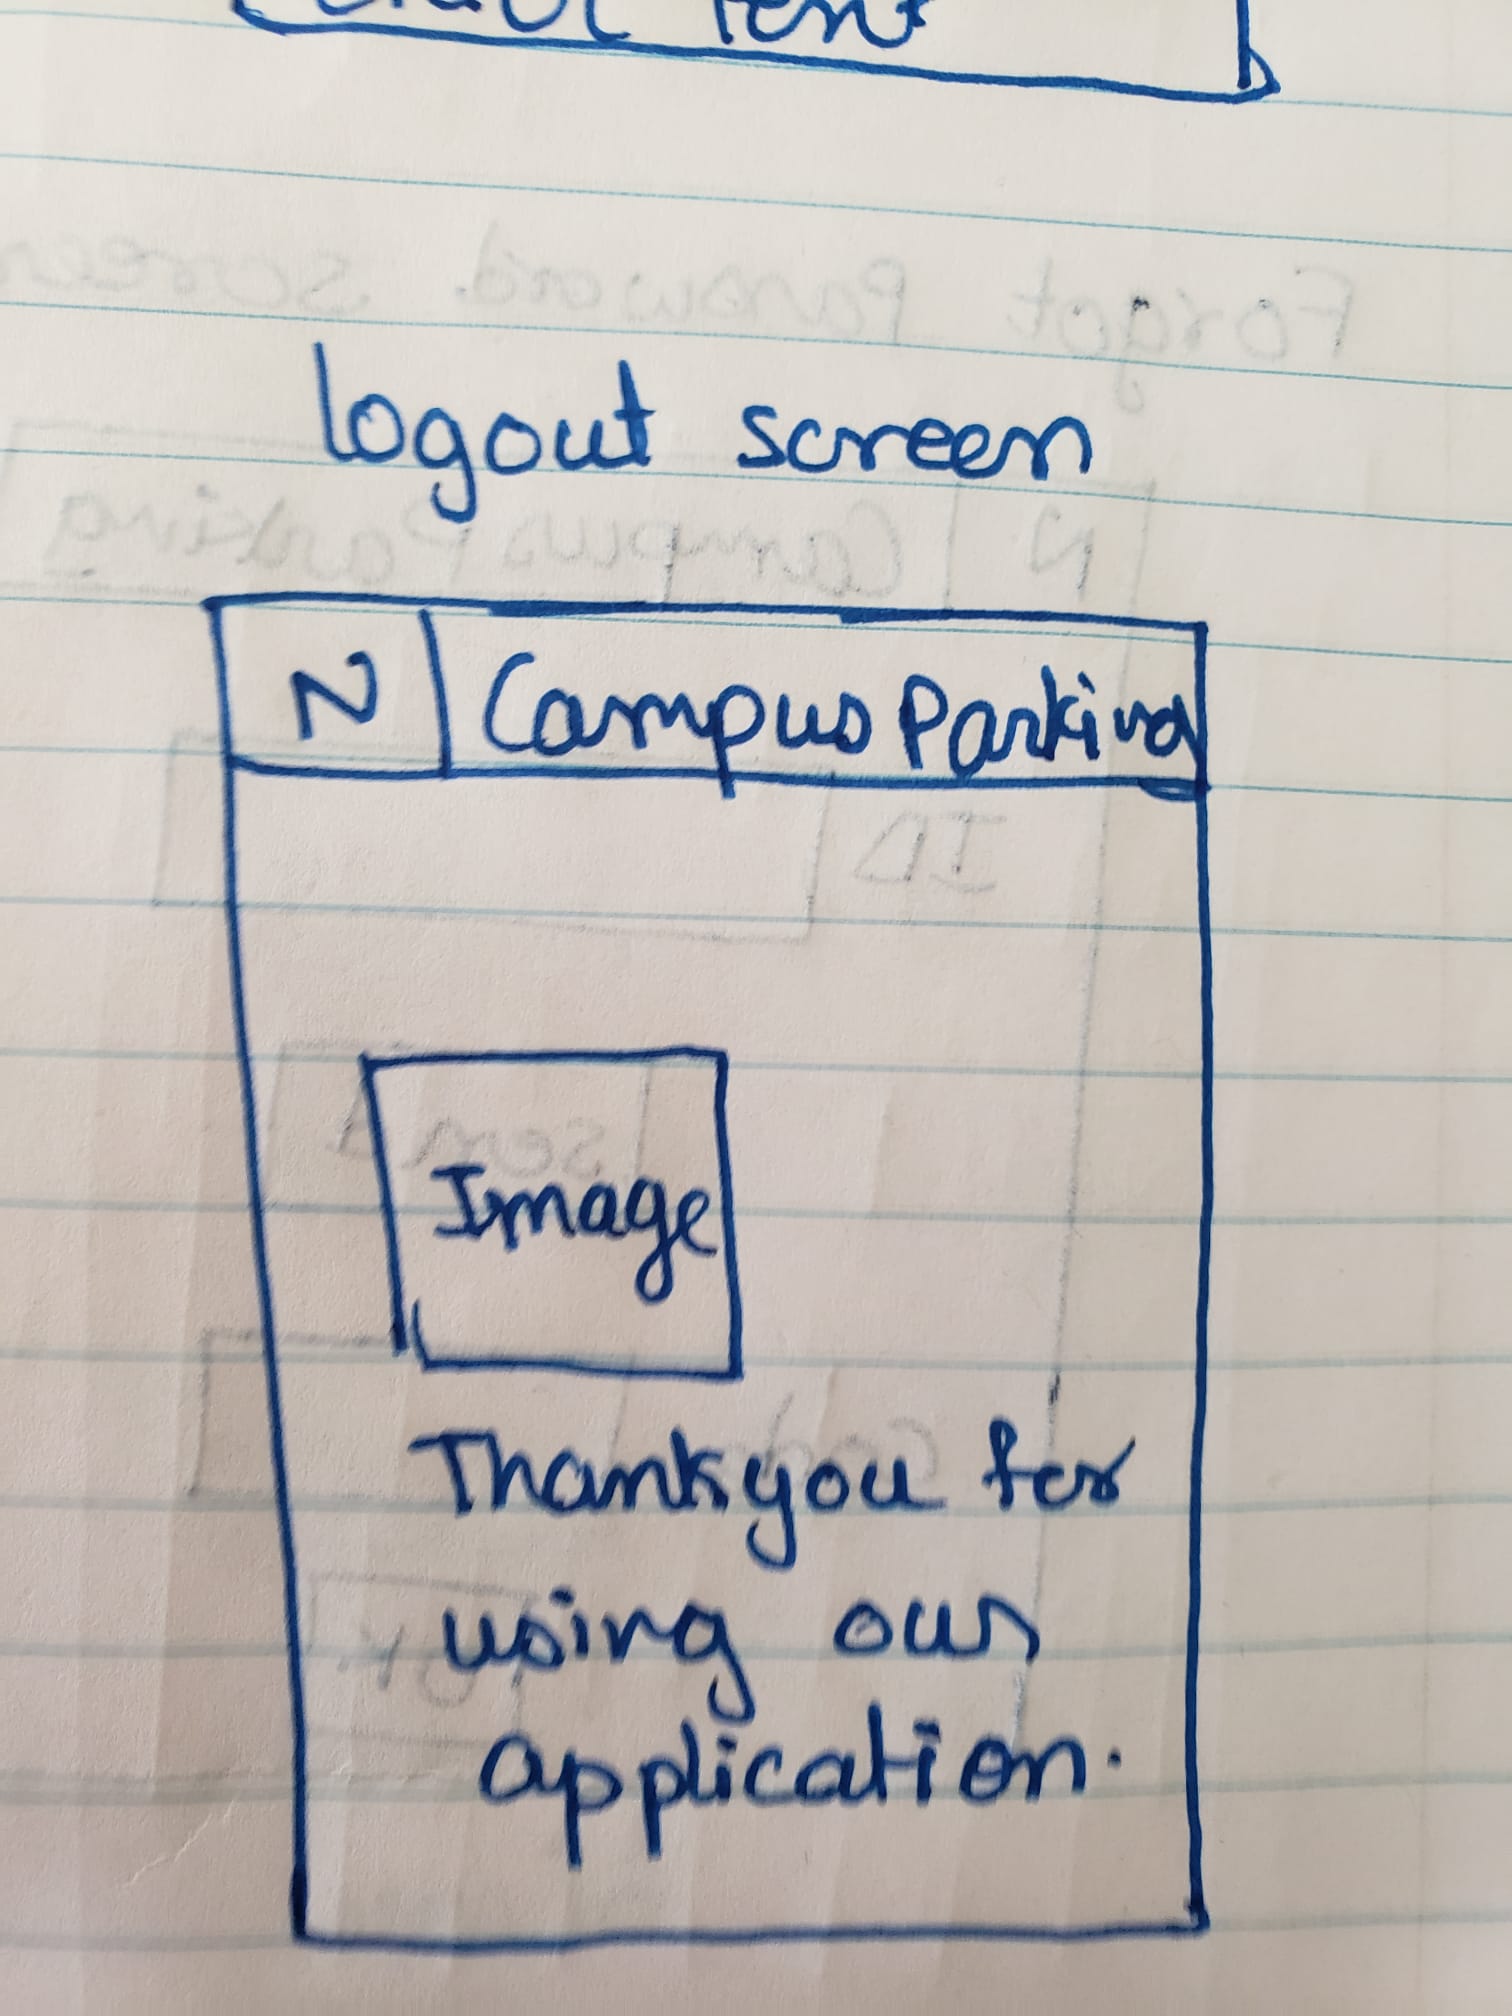 logout screen
N Campus Parking
Image
Thankyou for
using our
application.